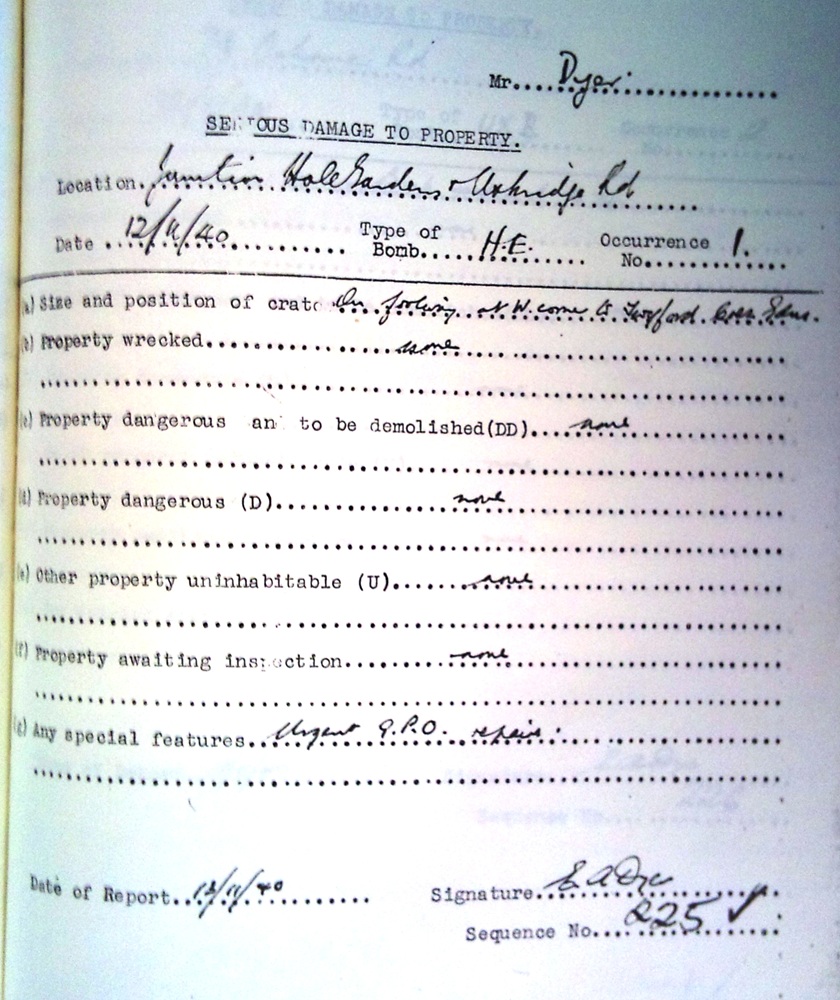 Mr....Dyer..............
SERIOUS DAMAGE TO PROPERTY.
Location. Junction Hale Gardens & Uxbridge Rd
Date ...12/11/40............ Type of Bomb.....H.E....... Occurrence No....1......
(a) Size and position of crater On footway at W. corner of Twyford
(b) Property wrecked....................none..............................
(c) Property dangerous and to be demolished(DD)....none..............
(d) Property dangerous (D)..................none.........................
(e) Other property uninhabitable (U)........none.......................
(f) Property awaiting inspection.........none.........................
(g) Any special features...Urgent G.P.O. repairs....................
Date of Report..12/11/40.........
Signature..E A Dyer...........
Sequence No....225 ✓....